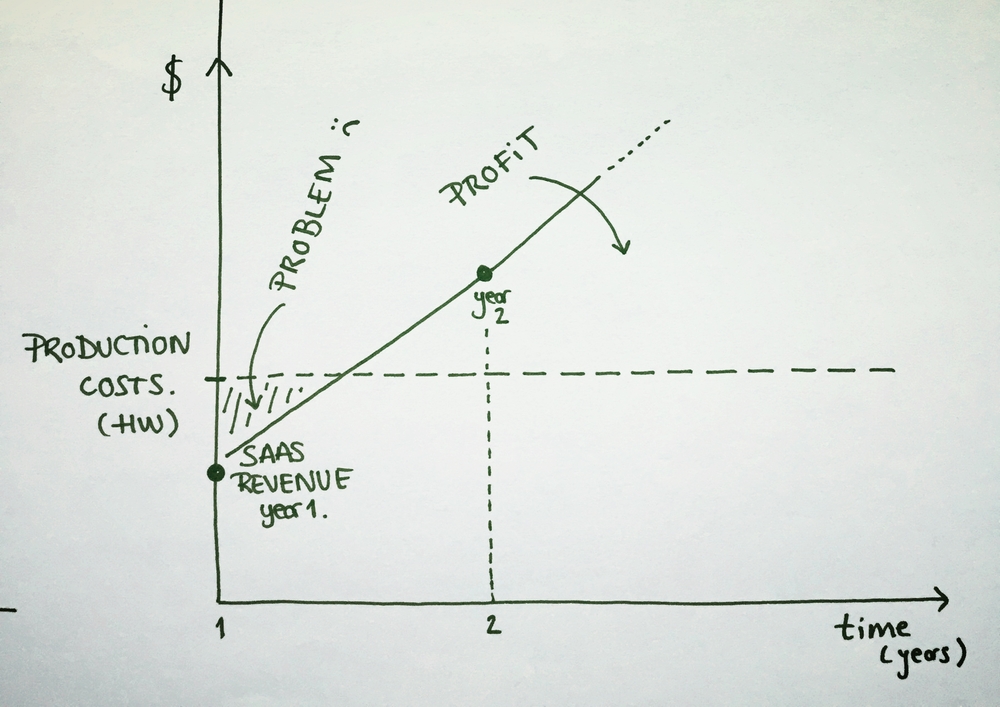 $
PROBLEM :(
PROFiT
year
2
PRODUCTiON
COSTS.
(HW)
SAAS
REVENUE
year 1.
1
2
time
(years)